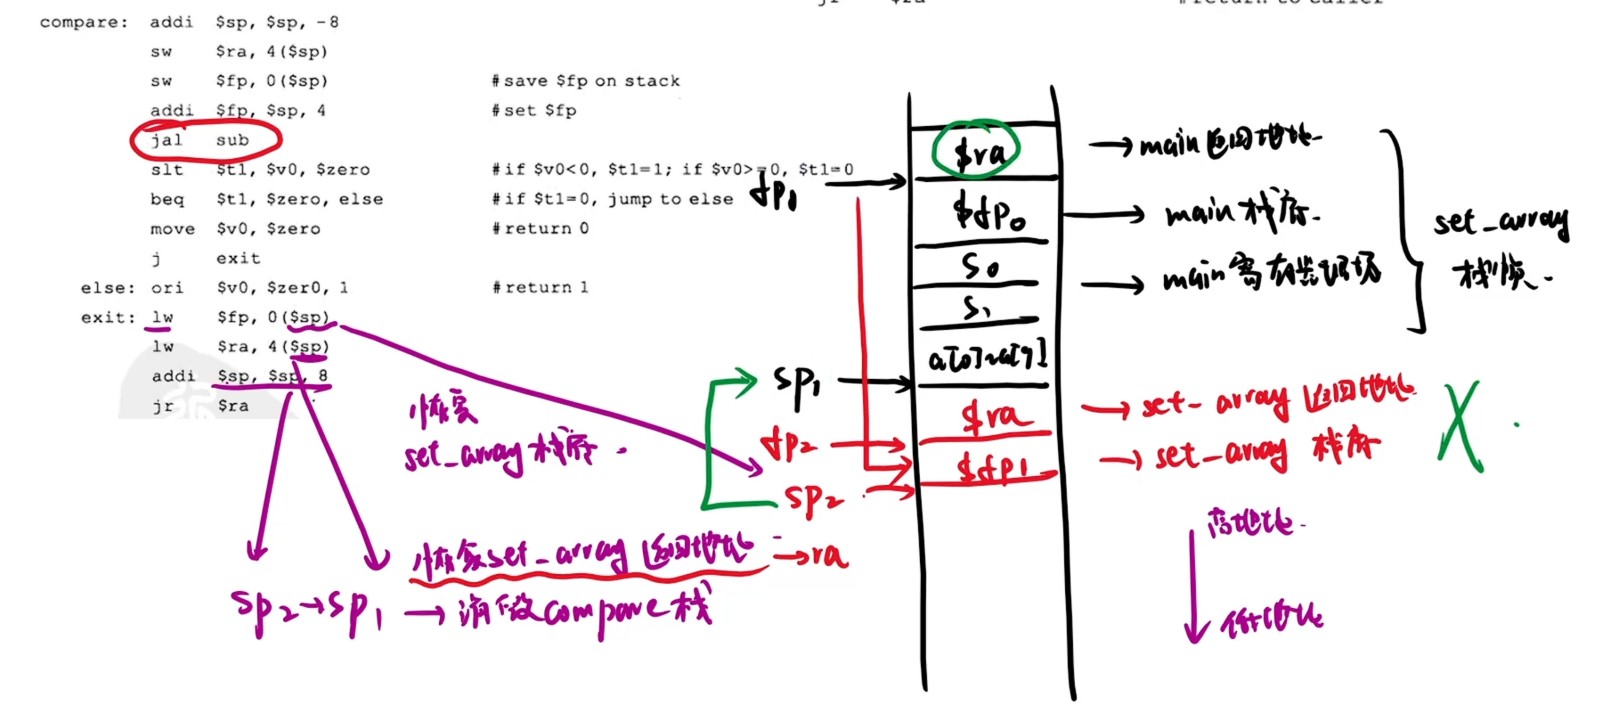 jr $ra #return to caller
compare: addi $sp, $sp, -8
sw $ra, 4($sp)
sw $fp, 0($sp) #save $fp on stack
addi $fp, $sp, 4 #set $fp
jal sub
slt $t1, $v0, $zero #if $v0<0, $t1=1; if $v0>=0, $t1=0
beq $t1, $zero, else #if $t1=0, jump to else
move $v0, $zero #return 0
j exit
else: ori $v0, $zer0, 1 #return 1
exit: lw $fp, 0($sp)
lw $ra, 4($sp)
addi $sp, $sp, 8
jr $ra
恢复
set_array 栈底.
恢复set_array 返回地址 →ra
sp2→sp1 → 消毁compare栈
fp1
sp1
fp2
sp2
$ra
$fp0
s0
s1
a[0]~a[9]
$ra
$fp1
→main返回地址
→ main栈底.
→ main寄存器现场
set_array
栈帧.
→ set_array 返回地址
→ set_array 栈底
X
高地址.
低地址